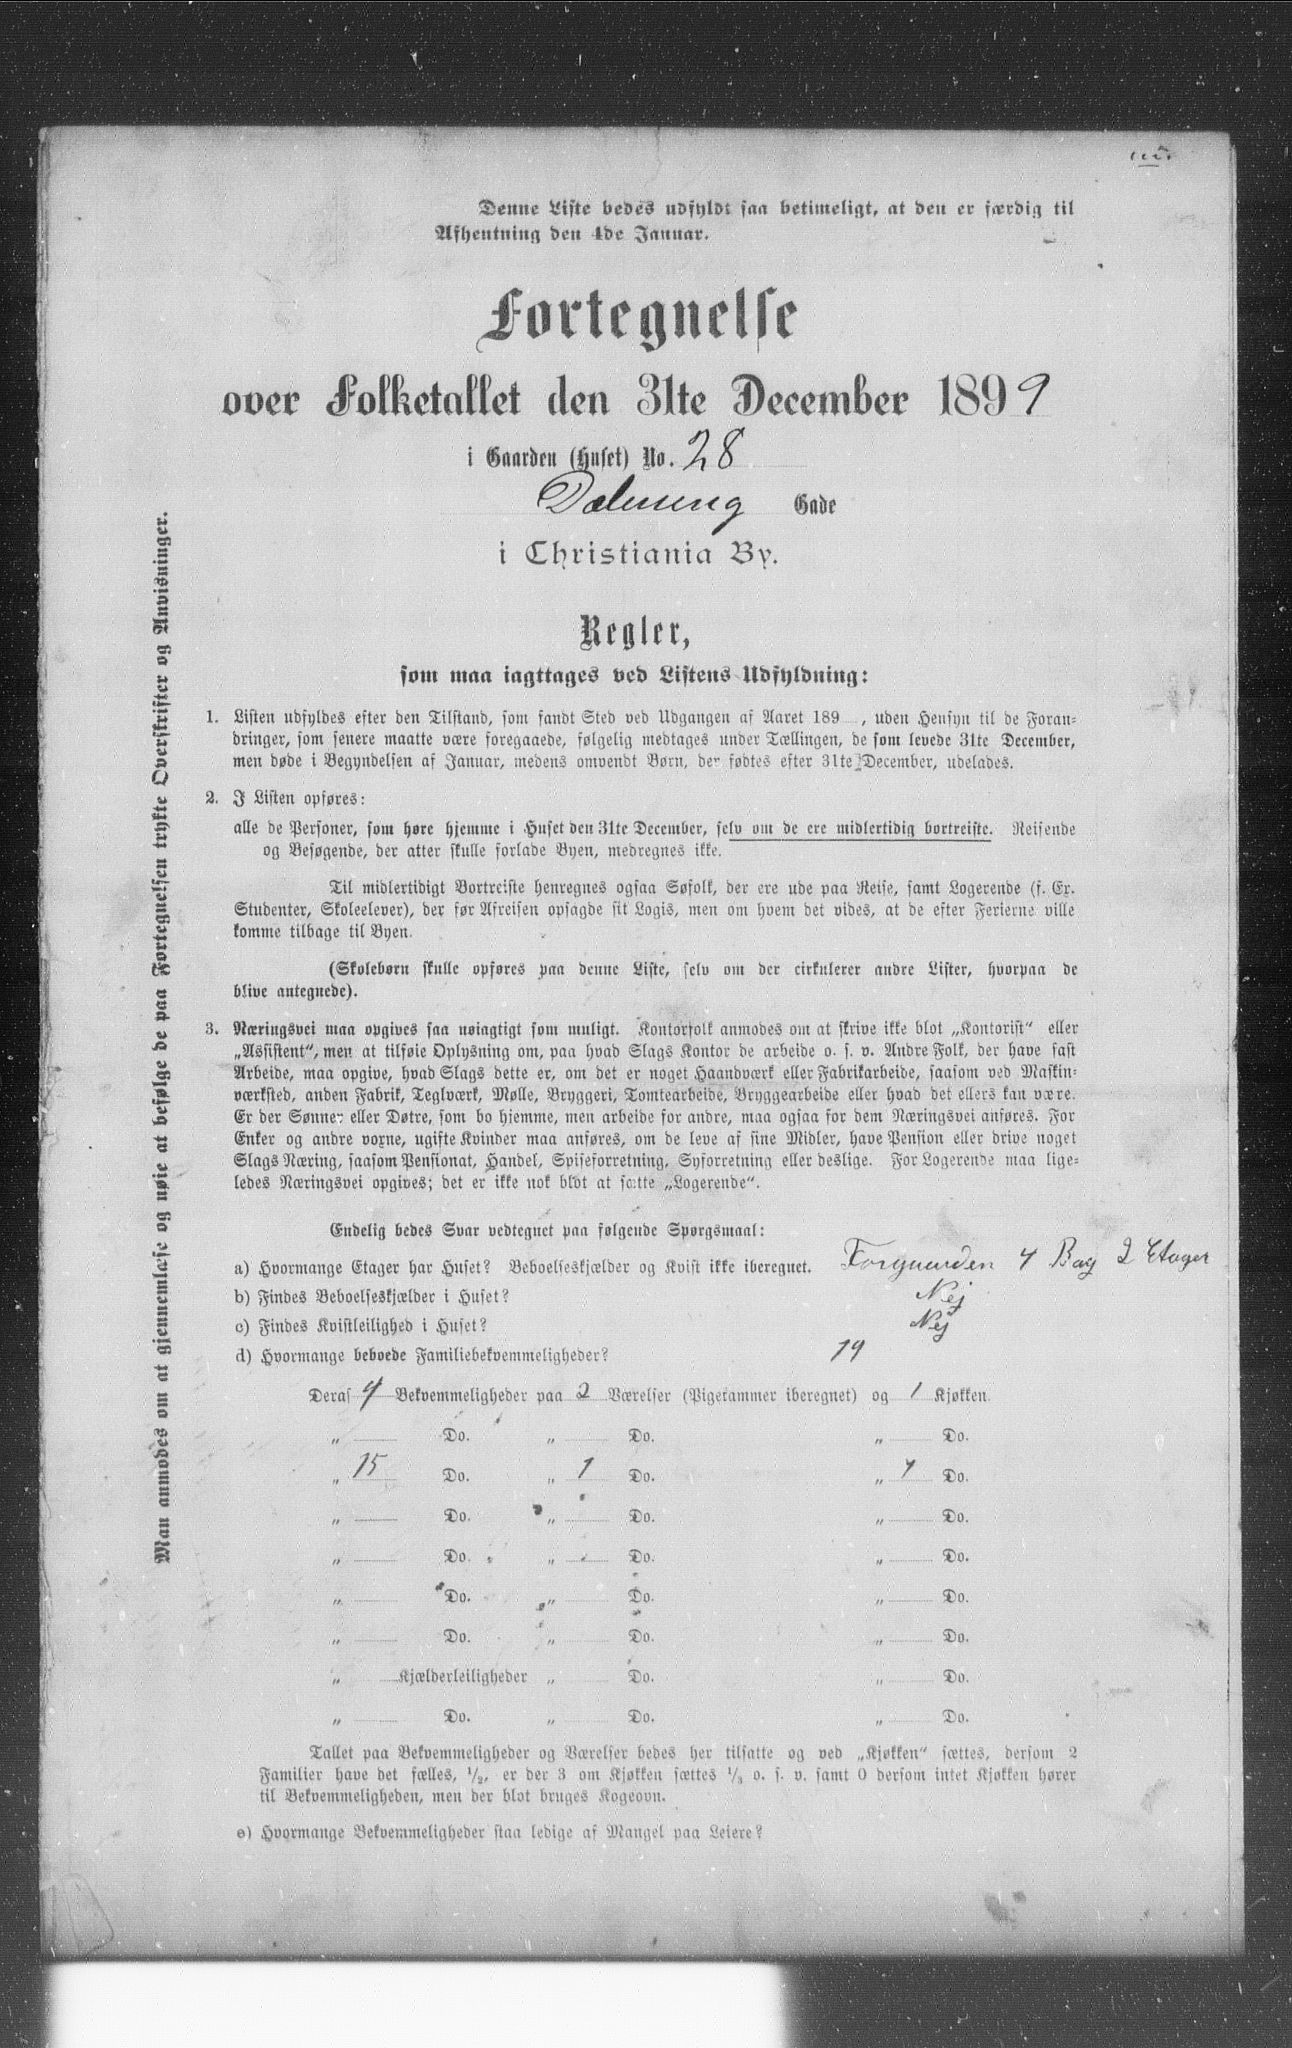 Denne Liste bedes udfyldt saa betimeligt, at den er færdig til
Afhentning den 4de Januar.
Fortegnelse
over Folketallet den 31te December 1899
i Gaarden (Huset) No. 28
Gade
i Christiania By.
Regler,
som maa iagttages ved Listens Udfyldning:
1. Listen udfyldes efter den Tilstand, som fandt Sted ved Udgangen af Aaret 189 , uden Hensyn til de Foran-
dringer, som senere maatte være foregaaede, følgelig medtages under Tællingen, de som levede 31te December,
men døde i Begyndelsen af Januar, medens omvendt Børn, der fødtes efter 31te December, udelades.
2. I Listen opføres:
alle de Personer, som høre hjemme i Huset den 31te December, selv om de ere midlertidig bortreiste. Reisende
og Besøgende, der atter skulle forlade Byen, medregnes ikke.
Til midlertidigt Bortreiste henregnes ogsaa Søfolk, der ere ude paa Reise, samt Logerende (f. Ex.
Studenter, Skoleelever), der før Afreisen opsagde sit Logis, men om hvem det vides, at de efter Ferierne ville
komme tilbage til Byen.
(Skolebørn skulle opføres paa denne Liste, selv om der cirkulerer andre Lister, hvorpaa de
blive antegnede).
3. Næringsvei maa opgives saa nøiagtigt som muligt. Kontorfolk anmodes om at skrive ikke blot „Kontorist“ eller
„Assistent“, men at tilføie Oplysning om, paa hvad Slags Kontor de arbeide o. s. v. Andre Folk, der have fast
Arbeide, maa opgive, hvad Slags dette er, om det er noget Haandværk eller Fabrikarbeide, saasom ved Maskin-
værksted, anden Fabrik, Teglværk, Mølle, Bryggeri, Tomtearbeide, Bryggearbeide eller hvad det ellers kan være.
Er der Sønner eller Døtre, som bo hjemme, men arbeide for andre, maa ogsaa for dem Næringsvei anføres. For
Enker og andre voxne, ugifte Kvinder maa anføres, om de leve af sine Midler, have Pension eller drive noget
Slags Næring, saasom Pensionat, Handel, Spiseforretning, Syforretning eller deslige. For Logerende maa lige-
ledes Næringsvei opgives; det er ikke nok blot at sætte „Logerende“.
Endelig bedes Svar vedtegnet paa følgende Spørgsmaal:
a) Hvormange Etager har Huset? Beboelseskjælder og Kvist ikke iberegnet. Forgaarden 4 Bag 2 Etager
b) Findes Beboelseskjælder i Huset? Nej
c) Findes Kvistleilighed i Huset? Nej
d) Hvormange beboede Familiebekvemmeligheder? 19
Deraf 4 Bekvemmeligheder paa 2 Værelser (Pigekammer iberegnet) og 1 Kjøkken.
„ Do. „ Do. „ Do.
„ 15 Do. „ 1 Do. „ 1 Do.
„ Do. „ Do. „ Do.
„ Do. „ Do. „ Do.
„ Do. „ Do. „ Do.
„ Do. „ Do. „ Do.
„ Kjælderleiligheder „ Do. „ Do.
„ Do. „ Do. „ Do.
Tallet paa Bekvemmeligheder og Værelser bedes her tilsatte og ved „Kjøkken“ sættes, dersom 2
Familier have det fælles, 1/2, er der 3 om Kjøkken sættes 1/3 o. s. v. samt 0 dersom intet Kjøkken hører
til Bekvemmeligheden, men der blot bruges Kogeovn.
e) Hvormange Bekvemmeligheder staa ledige af Mangel paa Leiere?
Man anmodes om at gjennemlæse og nøie at befølge de paa Fortegnelsen trykte Overskrifter og Anvisninger.